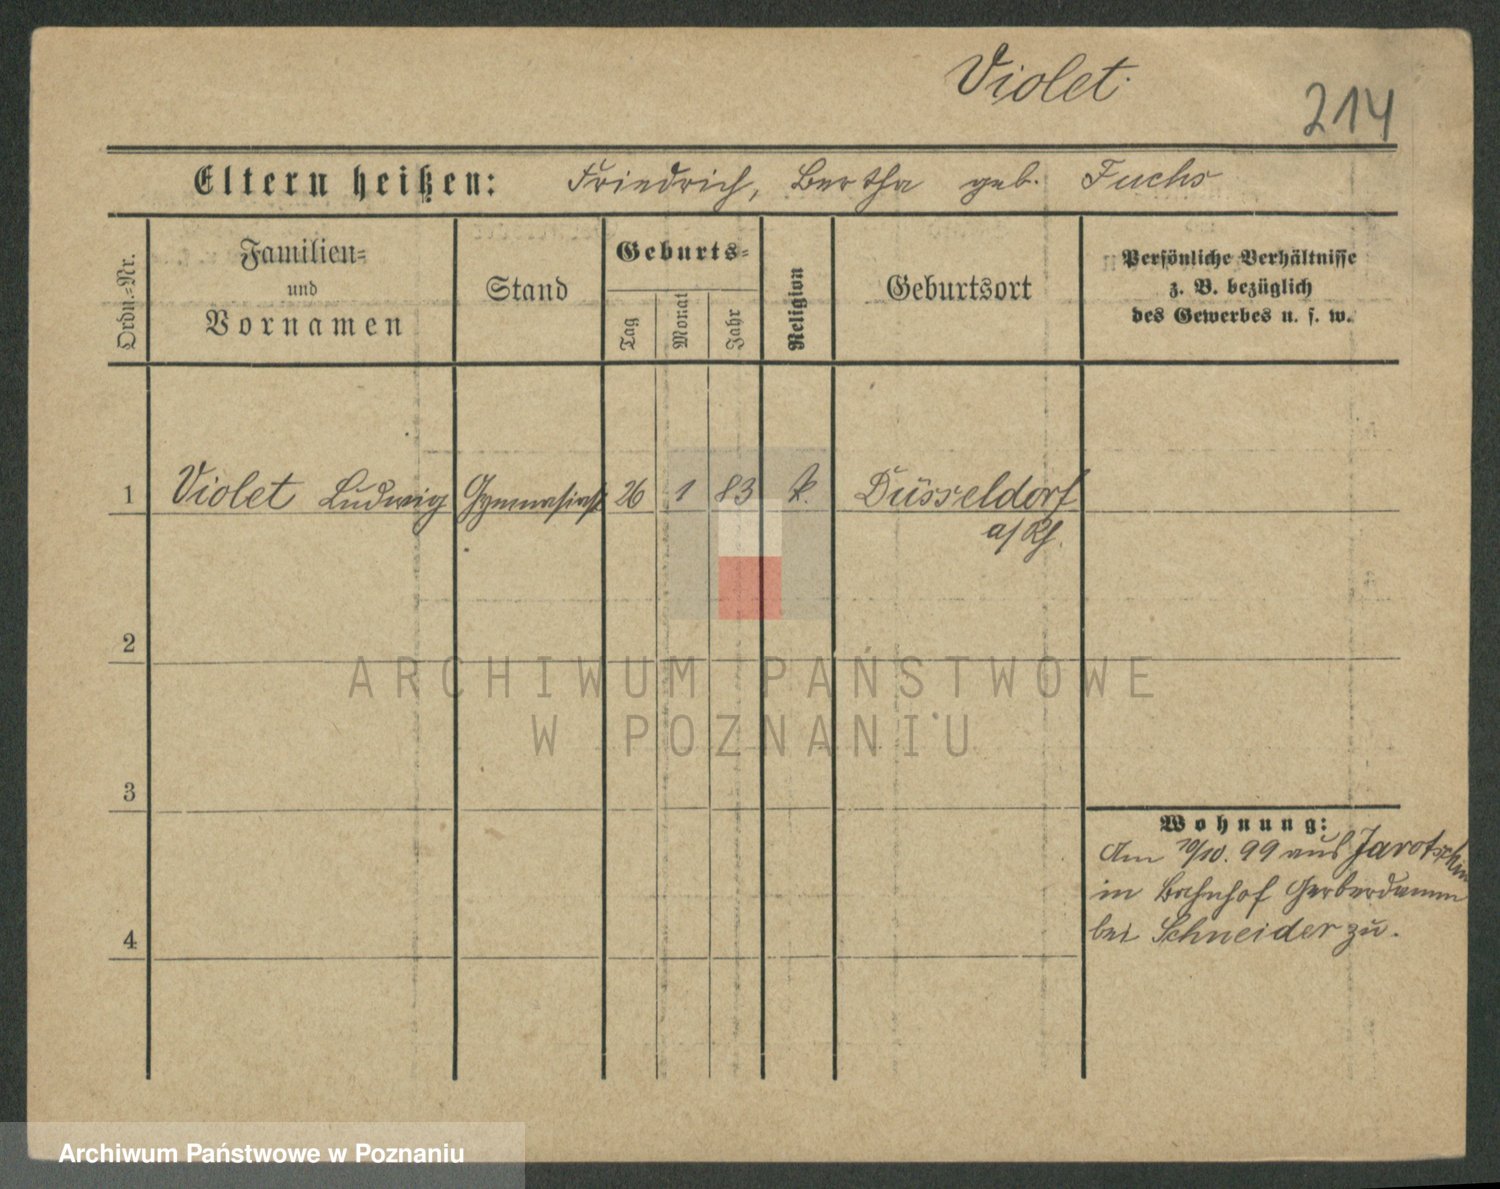 Violet.
214
Eltern heißen: Friedrich, Bertha geb. Fuchs
Ordn.-Nr.
Familien-
und
Vornamen
Stand
Geburts-
Tag
Monat
Jahr
Religion
Geburtsort
Persönliche Verhältnisse
z. B. bezüglich
des Gewerbes u. s. w.
1 Violet Ludwig Gymnasiast 26 1 83 k. Düsseldorf
a/Rh.
2
3
4
Wohnung:
Am 10/10. 99 aus Jarotschin
in Bahnhof Gerberdamm
bei Schneider zu.
ARCHIWUM PAŃSTWOWE
W POZNANIU
Archiwum Państwowe w Poznaniu